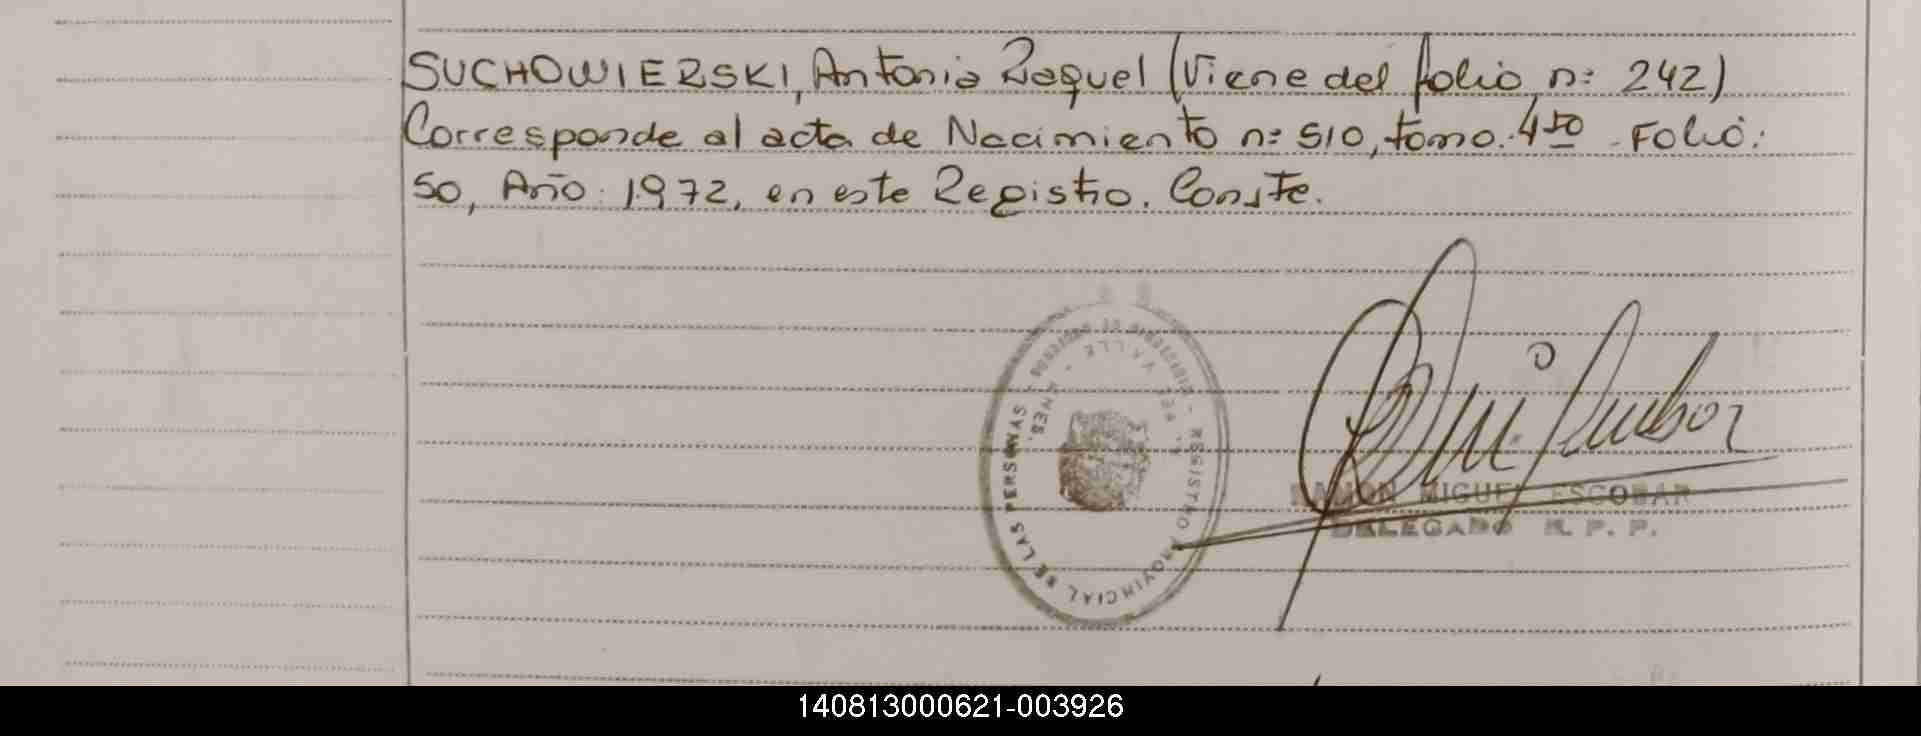 SUCHOWIERSKI, Antonia Raquel (Viene del folio n: 242)
Corresponde al acta de Nacimiento n: 510, tomo: 4to - Folio:
50, Año: 1972, en este Registro. Conste.
REGISTRO PROVINCIAL DE LAS PERSONAS
VALLE
RAMON MIGUEL ESCOBAR
DELEGADO R. P. P.
140813000621-003926